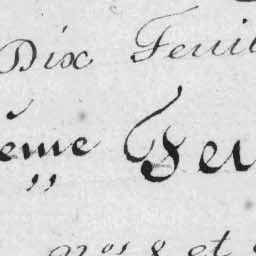 Dix Feuil
ème Feu
nos 8 et